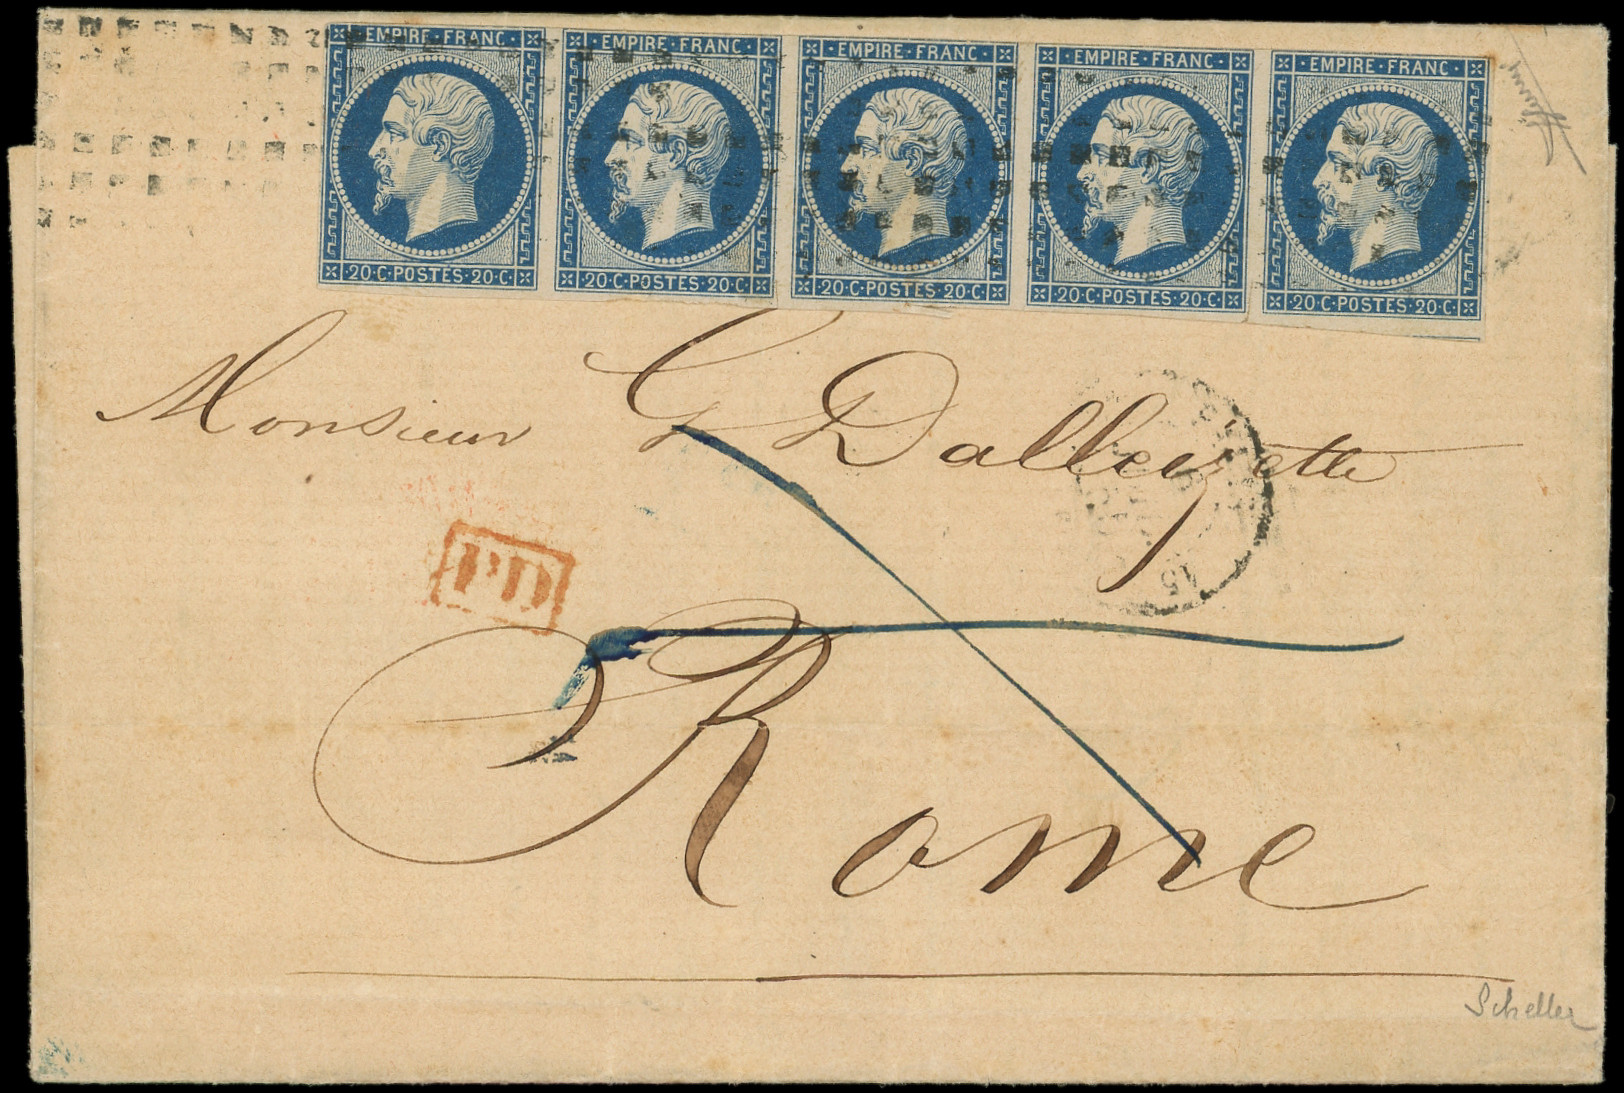 EMPIRE·FRANC· EMPIRE·FRANC· EMPIRE·FRANC· EMPIRE·FRANC· EMPIRE·FRANC·
·20·C·POSTES·20·C· ·20·C·POSTES·20·C· ·20·C·POSTES·20·C· ·20·C·POSTES·20·C· ·20·C·POSTES·20·C·
Monsieur G Dalleyzette
PD
Rome
15
Scheller